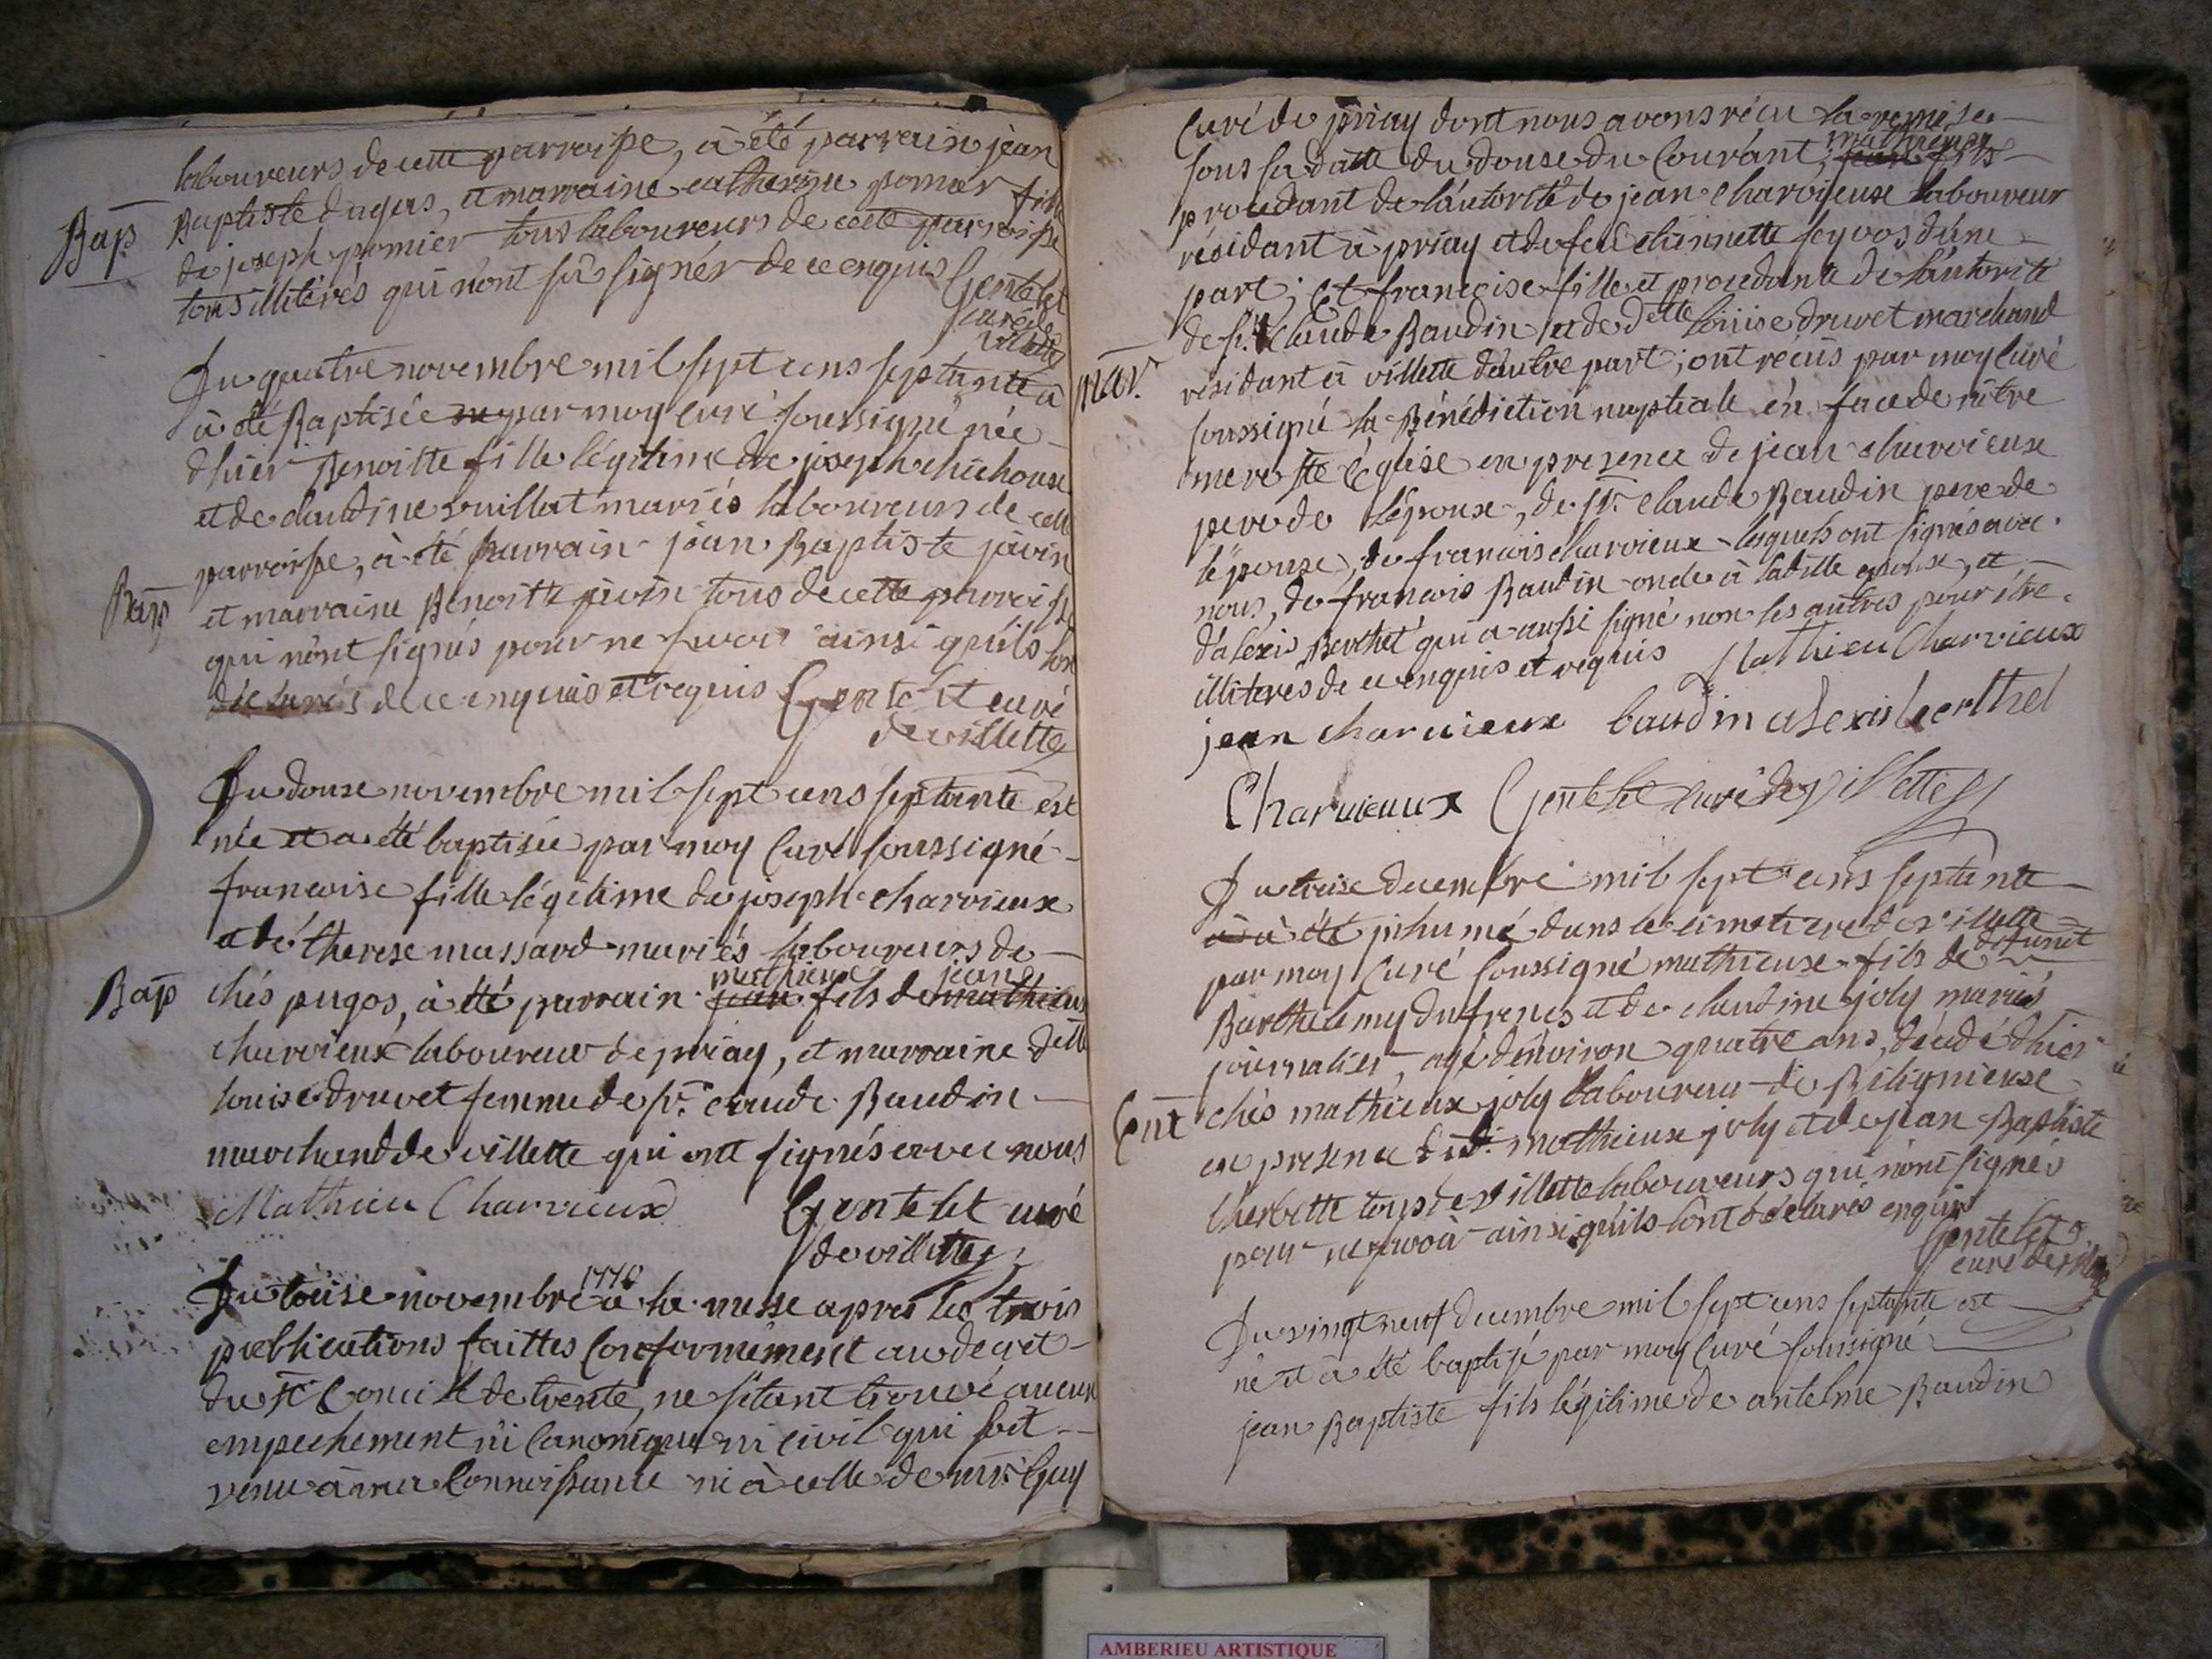 laboureurs de cette parroisse, à été parrain jean
Baptiste dugas, et marraine catherine pomier fille
Bap
de joseph pomier tous laboureurs de cette parroisse
tous illiterés qui n'ont sû signér de ce enquis Gentelet
curé de
villette
Du quatre novembre mil sept cens septante a
à été Baptisée par moy curé soussigné née
d'hier Benoitte fille légitime de joseph chichoux
et de claudine vuillat mariés laboureurs de cette
parroisse, à été parrain jean Baptiste jâvin
Bap
et marraine Benoitte jâvin tous de cette parroisse
qui n'ont signés pour ne savoir ainsi qu'ils l'ont
déclarés de ce enquis et requis Gentelet curé
de villette
Du douse novembre mil sept cens septante est
née et a été baptisée par moy Curé soussigné
francoise fille légitime de joseph charvieux
et de therese massard mariés laboureurs de
mathieux jean
Bap
chés pugos, à été parrain jean fils de mathieux
charvieux laboureur de priay, et marraine delle
louise druvet femme de sr. claude Baudin
marchand de villette qui ont signés avec nous
Mathieu Charvieux Gentelet curé
de villette
1770
Du treise novembre à la messe apres les trois
publications faittes Conformément au decret
du st Concile de trente, ne s'étant trouvé aucun
empechement ni Canonique ni civil qui soit
venu à ma Connoissance ni à celle de mre Guy
Curé de priay dont nous avons récu la remise
mathieux
sous sa datte du douse du Courant, jean fils
procedant de l'autorité de jean charvieux laboureur
résidant à priay et de feue etiennette seyvos d'une
part; Et francoise fille et procedante de l'autorité
de sr. Claude Baudin et de delle louise druvet marchand
mar.
residant à villette d'autre part; ont récûs par moy Curé
soussigné la Bénédiction nuptiale en face de nôtre
mere ste église en presence de jean charvieux
pere de l'époux, de sr. Claude Baudin pere de
l'epouse, de francois charvieux lesquels ont signés avec
nous, de francois Baudin oncle à ladtte epouse, et
d'alexis Berthet qui a aussi signé non les autres pour être
illiterés de ce enquis et requis Mathieu Charvieux
jean charvieux baudin alexis berthet
Charvieux Gentelet curé de Villette
Du treise decembre mil sept cens septante
a à été inhumé dans le cimetiere de villette
defunt
par moy Curé soussigné mathieux fils de
Barthelemy dufrenes et de claudine joly mariés
journalier, agé d'environ quatre ans, décédé d'hier
Ent
chés mathieux joly laboureur de Riligneux
en presence dudt. mathieux joly et de jean Baptiste
l'herbette tous de villette laboureurs qui n'ont signés
pour ne savoir ainsi qu'ils l'ont déclarés enquis
Gentelet
curé de villette
Du vingt neuf decembre mil sept cens septante est
né et à été baptisé par moy Curé soussigné
jean Baptiste fils légitime de antelme Baudin
AMBERIEU ARTISTIQUE